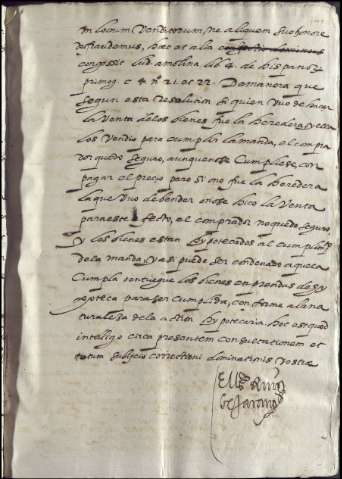 in locum Venditorum, ne aliquem suo honore
defraudemus, hoc as ala
con post Lud. amolina lib 4. de hispanor
primog. c 4 nº 21. et 22. Demanera que
segun esta resolucion si quien vuo de hacer
la Venta delos bienes fue la heredera, y ella
los vendio para cumplir la manda, el compra
dor quedo seguro, aunque no se Cumpliese, con
pagar el precio pero si no fue la heredera
la que vuo de bender, o no se hico la Venta
para este efecto, el comprador no quedo seguro,
y los bienes estan hypotecados al cumplimº
dela manda, y asi puede ser condenado a que la
Cumpla o entregue los bienes en prendas de hy
poteca para ser Cumplida, conforme a la na
turaleza dela action hypotecaria. hoc est quod
intelligo circa presentem consultationem et
totum subijcio correctioni dominationis vostræ
El